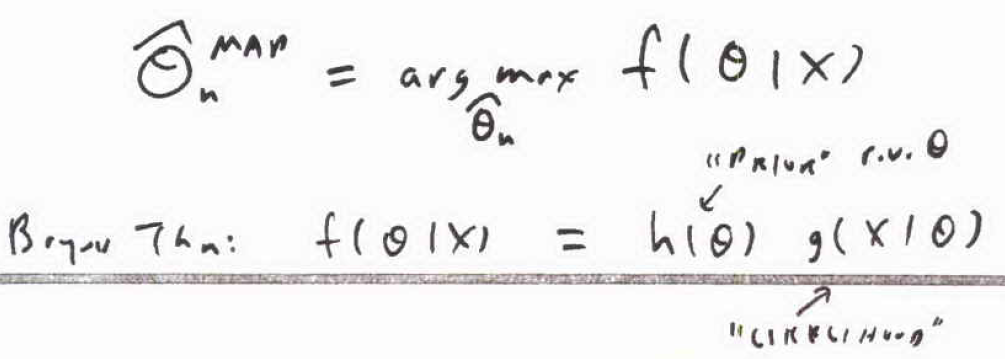 Θ̂ₙ^MAP = arg max f(θ|X)
θ̂ₙ
"PRIOR" r.v. θ
Bayes Thm: f(θ|X) = h(θ) g(X|θ)
"LIKELIHOOD"